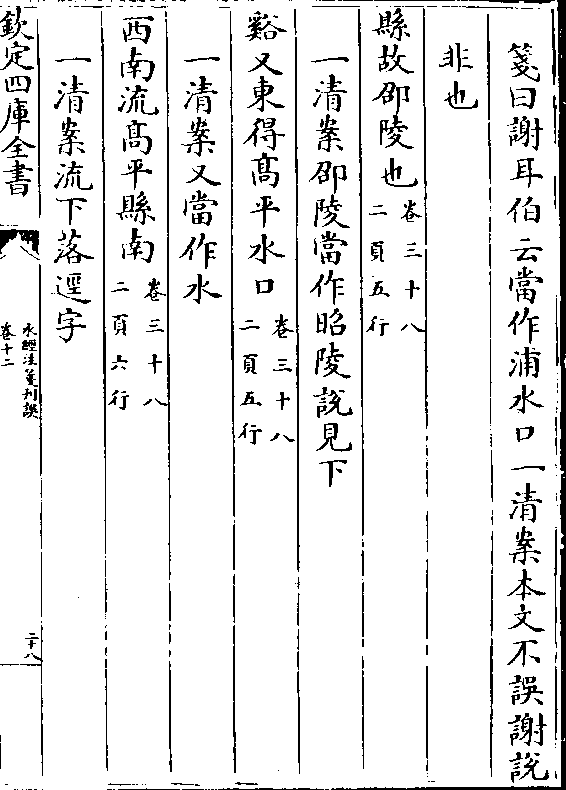 箋曰謝耳伯云當作浦水口一清案本文不誤謝説
非也
縣故邵陵也卷三十八
二頁五行
一清案邵陵當作昭陵説見下
谿又東得髙平水口卷三十八
二頁五行
一清案又當作水
西南流髙平縣南卷三十八
二頁六行
一清案流下落逕字
欽定四庫全書
水經注箋刋誤
卷十二
二十八